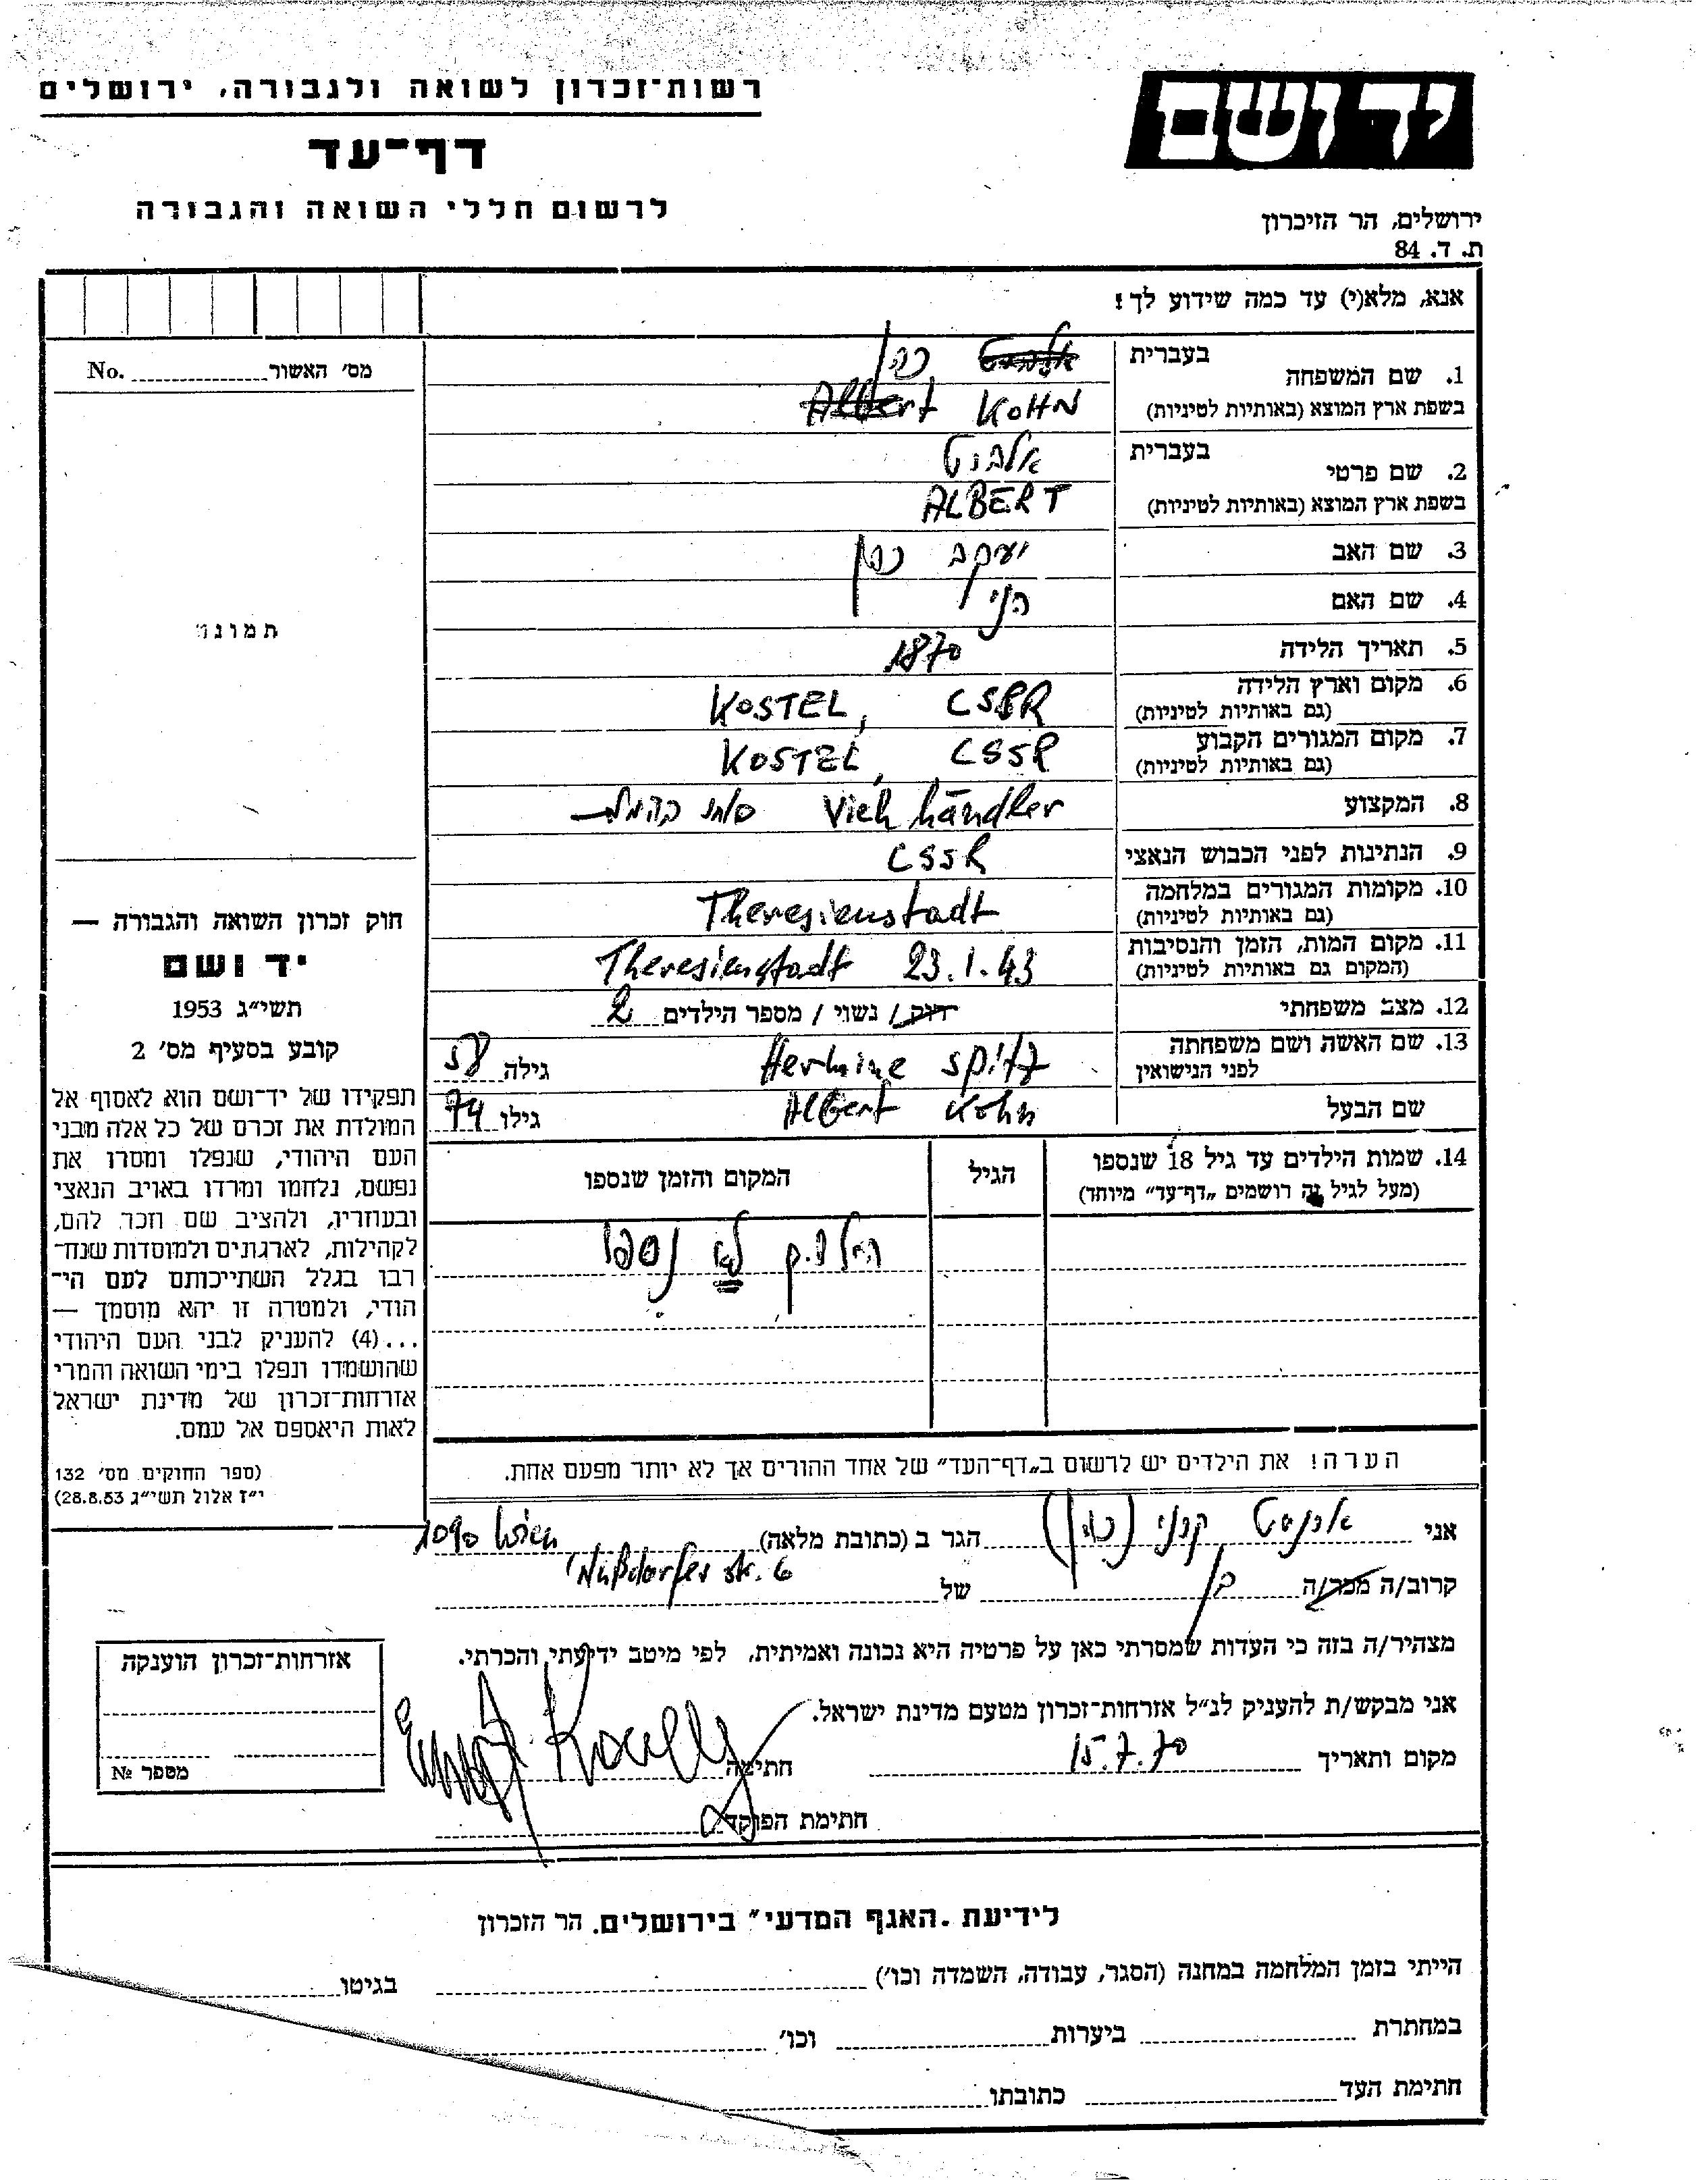 יד ושם
רשות־זכרון לשואה ולגבורה, ירושלים
דף־עד
לרשום חללי השואה והגבורה
ירושלים, הר הזיכרון
ת. ד. 84
אנא, מלא(י) עד כמה שידוע לך!
מס׳ האשור No.
תמונה
חוק זכרון השואה והגבורה —
יד ושם
תשי״ג 1953
קובע בסעיף מס׳ 2
תפקידו של יד־ושם הוא לאסוף אל
המולדת את זכרם של כל אלה מבני
העם היהודי, שנפלו ומסרו את
נפשם, נלחמו ומרדו באויב הנאצי
ובעוזריו, ולהציב שם וזכר להם,
לקהילות, לארגונים ולמוסדות שנח־
רבו בגלל השתייכותם לעם הי־
הודי, ולמטרה זו יהא מוסמך —
...(4) להעניק לבני העם היהודי
שהושמדו ונפלו בימי השואה והמרי
אזרחות־זכרון של מדינת ישראל
לאות היאספם אל עמם.
(ספר החוקים מס׳ 132
י״ז אלול תשי״ג 28.8.53)
1. שם המשפחה
בעברית אלברט כהן
בשפת ארץ המוצא (באותיות לטיניות) KOHN Albert
2. שם פרטי
בעברית אלברט
בשפת ארץ המוצא (באותיות לטיניות) ALBERT
3. שם האב יעקב כהן
4. שם האם הני
5. תאריך הלידה 1870
6. מקום וארץ הלידה KOSTEL, CSSR
(גם באותיות לטיניות)
7. מקום המגורים הקבוע KOSTEL, CSSR
(גם באותיות לטיניות)
8. המקצוע Viehhändler סוחר בהמות
9. הנתינות לפני הכבוש הנאצי CSSR
10. מקומות המגורים במלחמה Theresienstadt
(גם באותיות לטיניות)
11. מקום המות, הזמן והנסיבות Theresienstadt 23.1.43
(המקום גם באותיות לטיניות)
12. מצב משפחתי רווק / נשוי / מספר הילדים 2
13. שם האשה ושם משפחתה Hermine Spitz גילה 58
לפני הנישואין
שם הבעל Albert Kohn גילו 74
14. שמות הילדים עד גיל 18 שנספו הגיל המקום והזמן שנספו
(מעל לגיל זה רושמים „דף־עד״ מיוחד)
לא נספו
הערה! את הילדים יש לרשום ב„דף־העד״ של אחד ההורים אך לא יותר מפעם אחת.
אני ארנסט קנלי (כהן) הגר ב (כתובת מלאה) 1090 Wien
Nußdorfer str. 6
קרוב/ה מכר/ה בן של
מצהיר/ה בזה כי העדות שמסרתי כאן על פרטיה היא נכונה ואמיתית, לפי מיטב ידיעתי והכרתי.
אני מבקש/ת להעניק לנ״ל אזרחות־זכרון מטעם מדינת ישראל.
מקום ותאריך 15.7.70 חתימה
חתימת הפוקד
אזרחות־זכרון הוענקה
מספר №
לידיעת „האגף המדעי״ בירושלים. הר הזכרון
הייתי בזמן המלחמה במחנה (הסגר, עבודה, השמדה וכו׳) בגיטו
במחתרת ביערות וכו׳
חתימת העד כתובתו